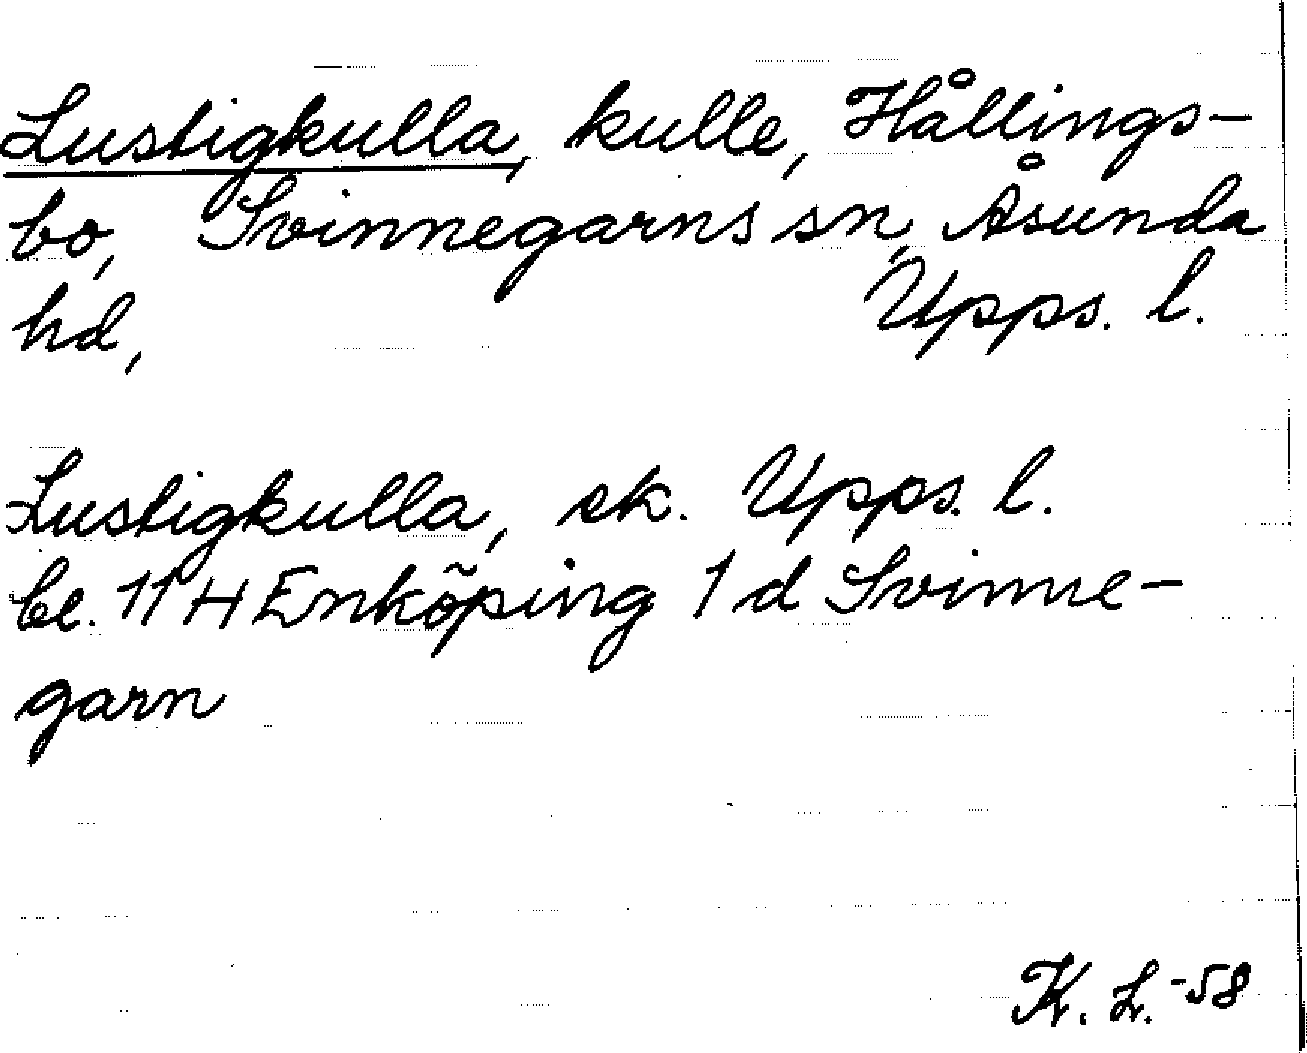 Lustigkulla, kulle, Hållings-
bo, Svinnegarns sn, Åsunda
hd, Upps. l.
Lustigkulla, ek. Upps. l.
bl. 11 H Enköping 1 d Svinne-
garn
K. L. -58